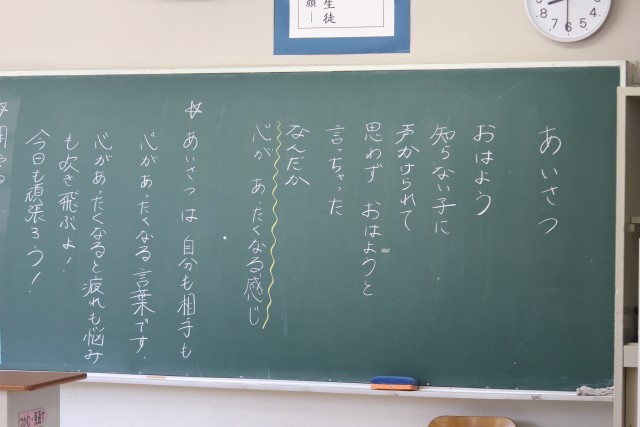 生徒
顔ー
あいさつ
おはよう
知らない子に
声かけられて
思わず おはようと
言っちゃった
なんだか
心が あったくなる感じ
☆ あいさつ は 自分も相手も
心が あったくなる言葉です.
心があったくなると疲れも悩み
も吹き飛ぶよ!
今日も頑張ろう!
つかむ・見通す